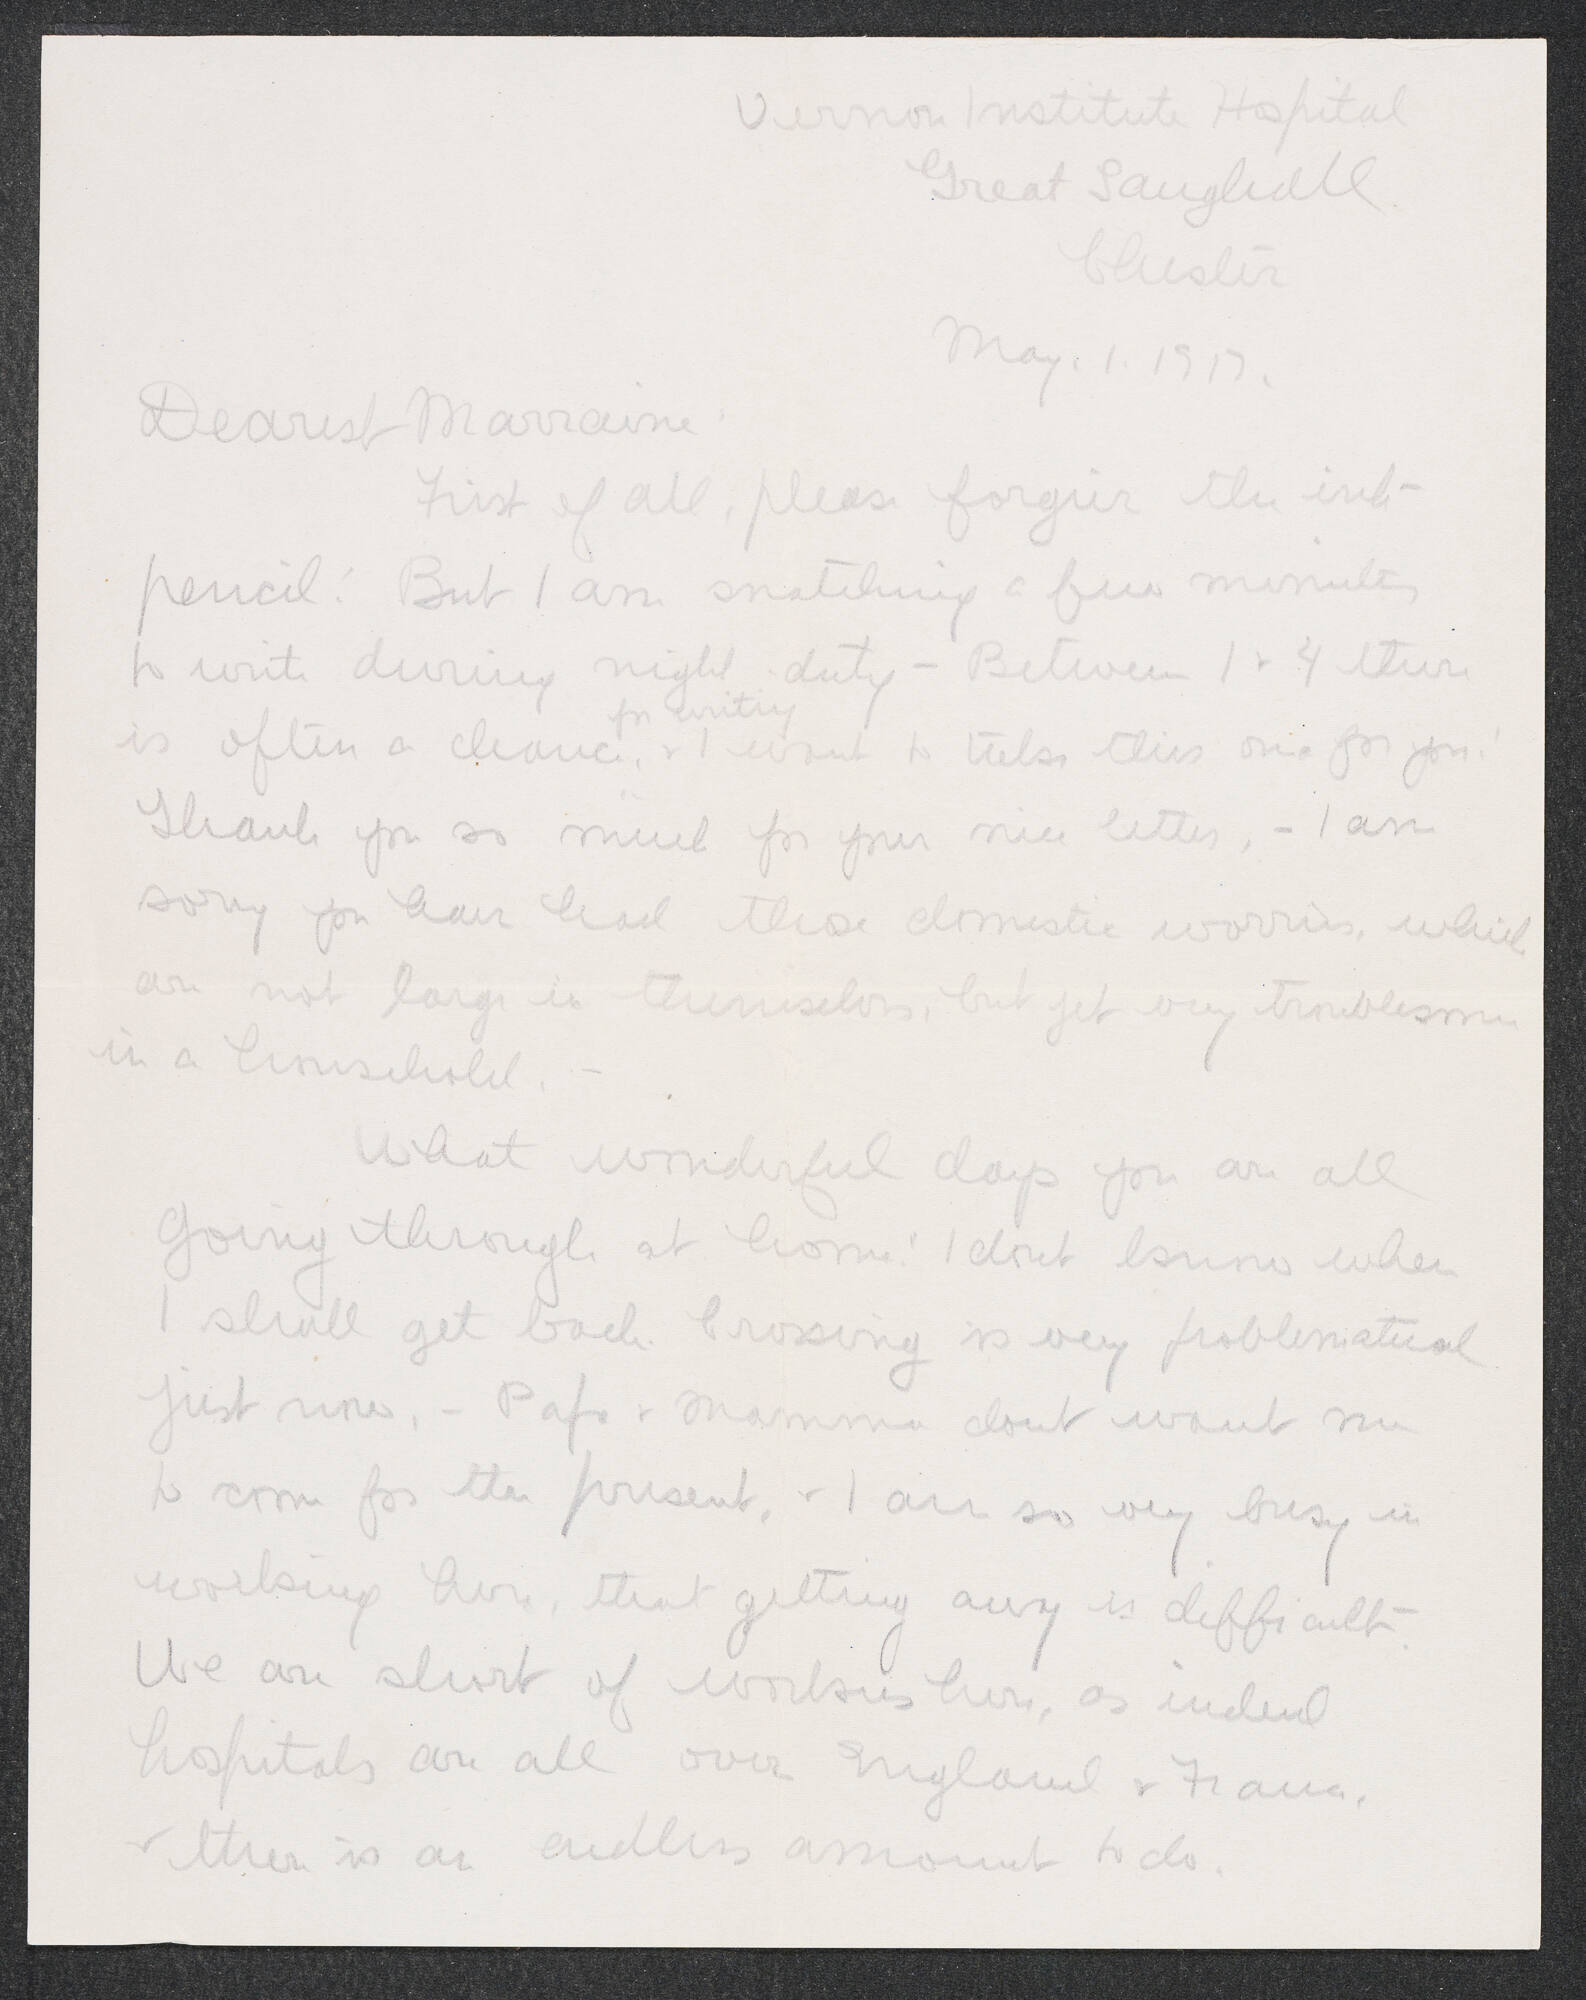 Vernon Institute Hospital
Great Saughall.
Chester
May. 1. 1917.
Dearest Marraine:
First of all, please forgive the ink-
pencil! But I am snatching a few minutes
to write during night-duty - Between 1 & 4 there
for writing
is often a chance, & I want to take this one for you!
Thank you so much for your nice letter, - I am
sorry you have had these domestic worries, which
are not large in themselves, but yet very troublesome
in a household. -
What wonderful days you are all
going through at home! I dont know when
I shall get back. Crossing is very problematical
just now, - Papa & Mamma dont want me
to come for the present, & I am so very busy in
working here, that getting away is difficult.
We are short of workers here, as indeed
hospitals are all over England & France,
& there is an endless amount to do.